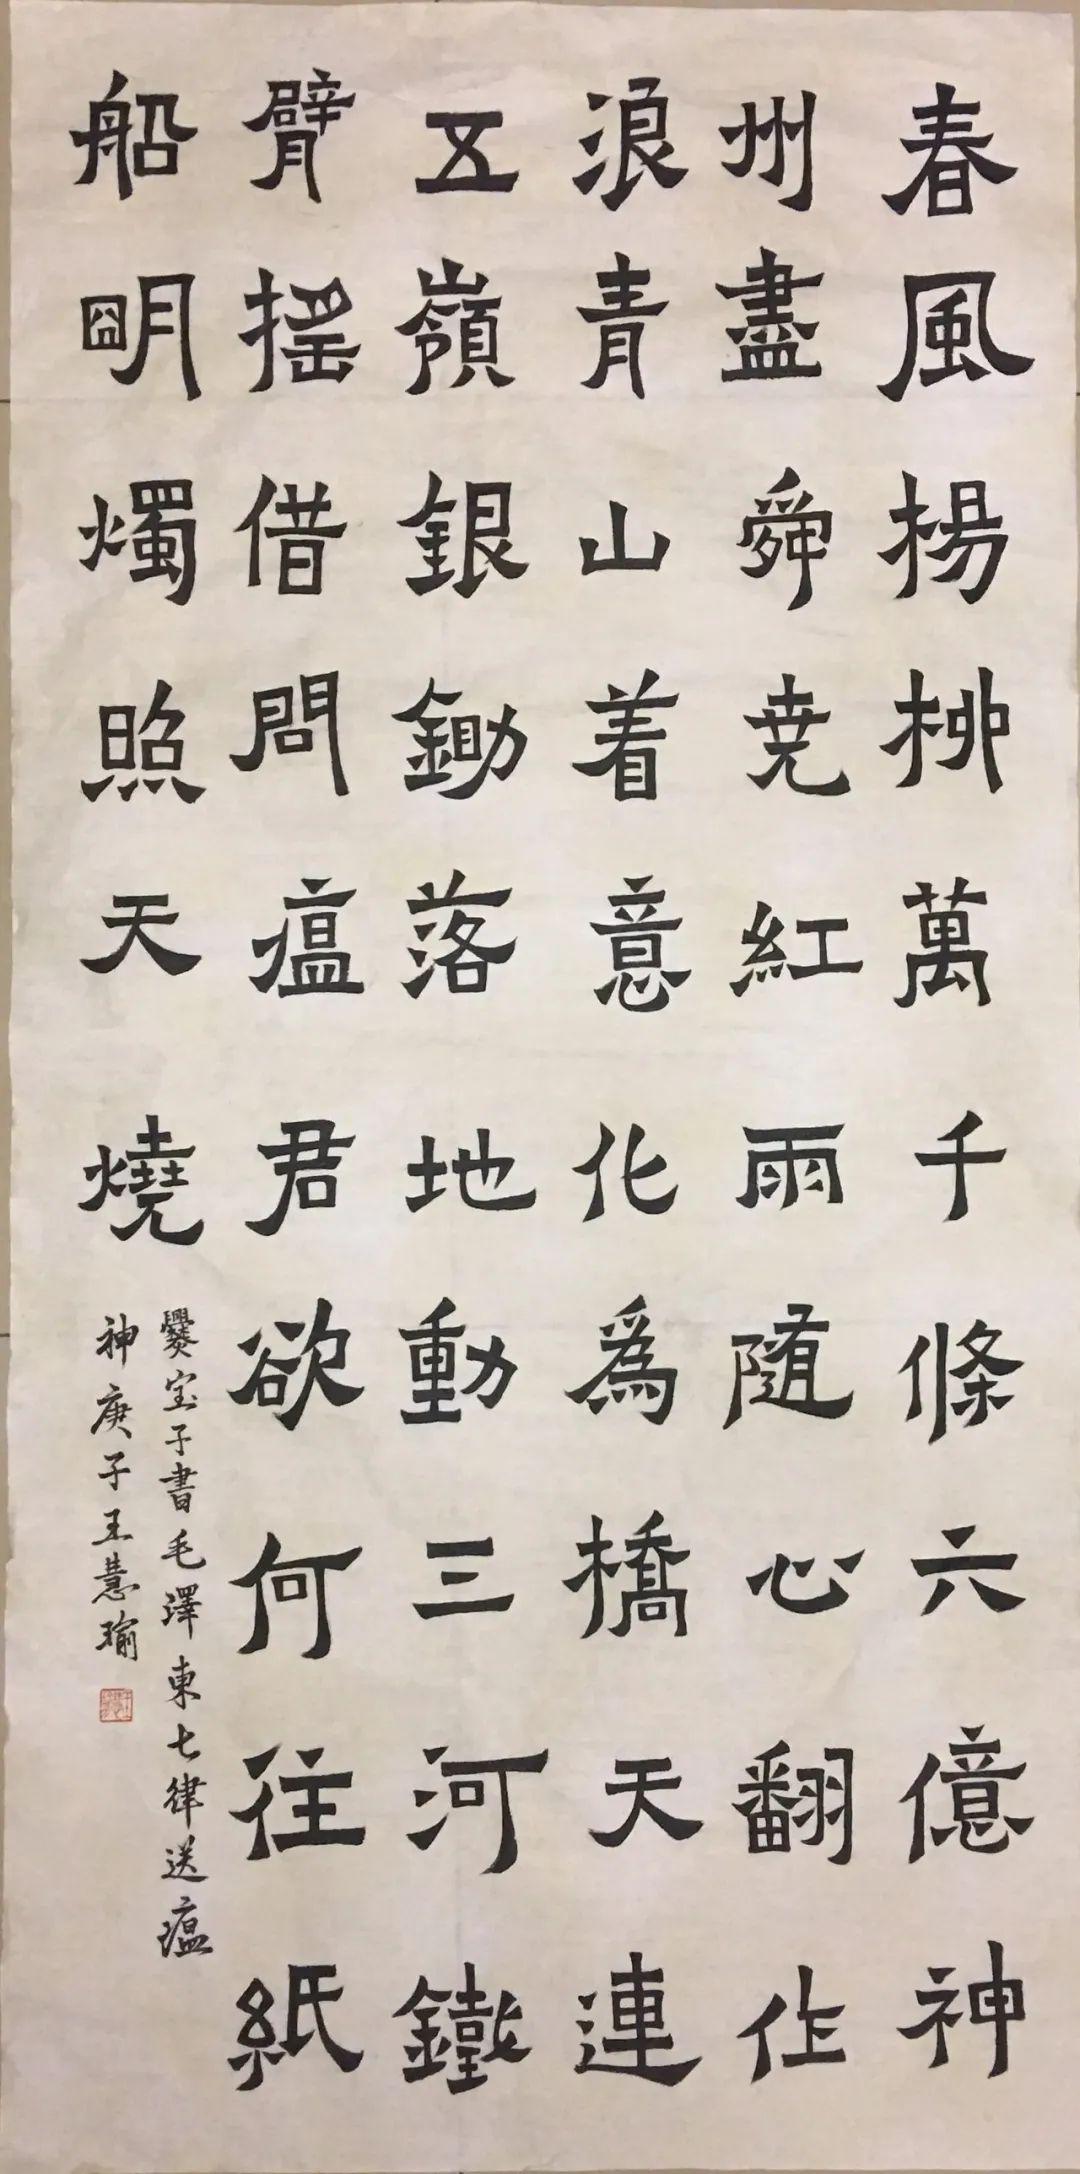 春風揚栁萬千條六億神
州盡舜尭紅雨随心翻作
浪青山着意化為橋天連
五嶺銀鋤落地動三河鐵
臂摇借問瘟君欲何往紙
船明燭照天燒
爨宝子書毛澤東七律送瘟
神庚子王慧瑜